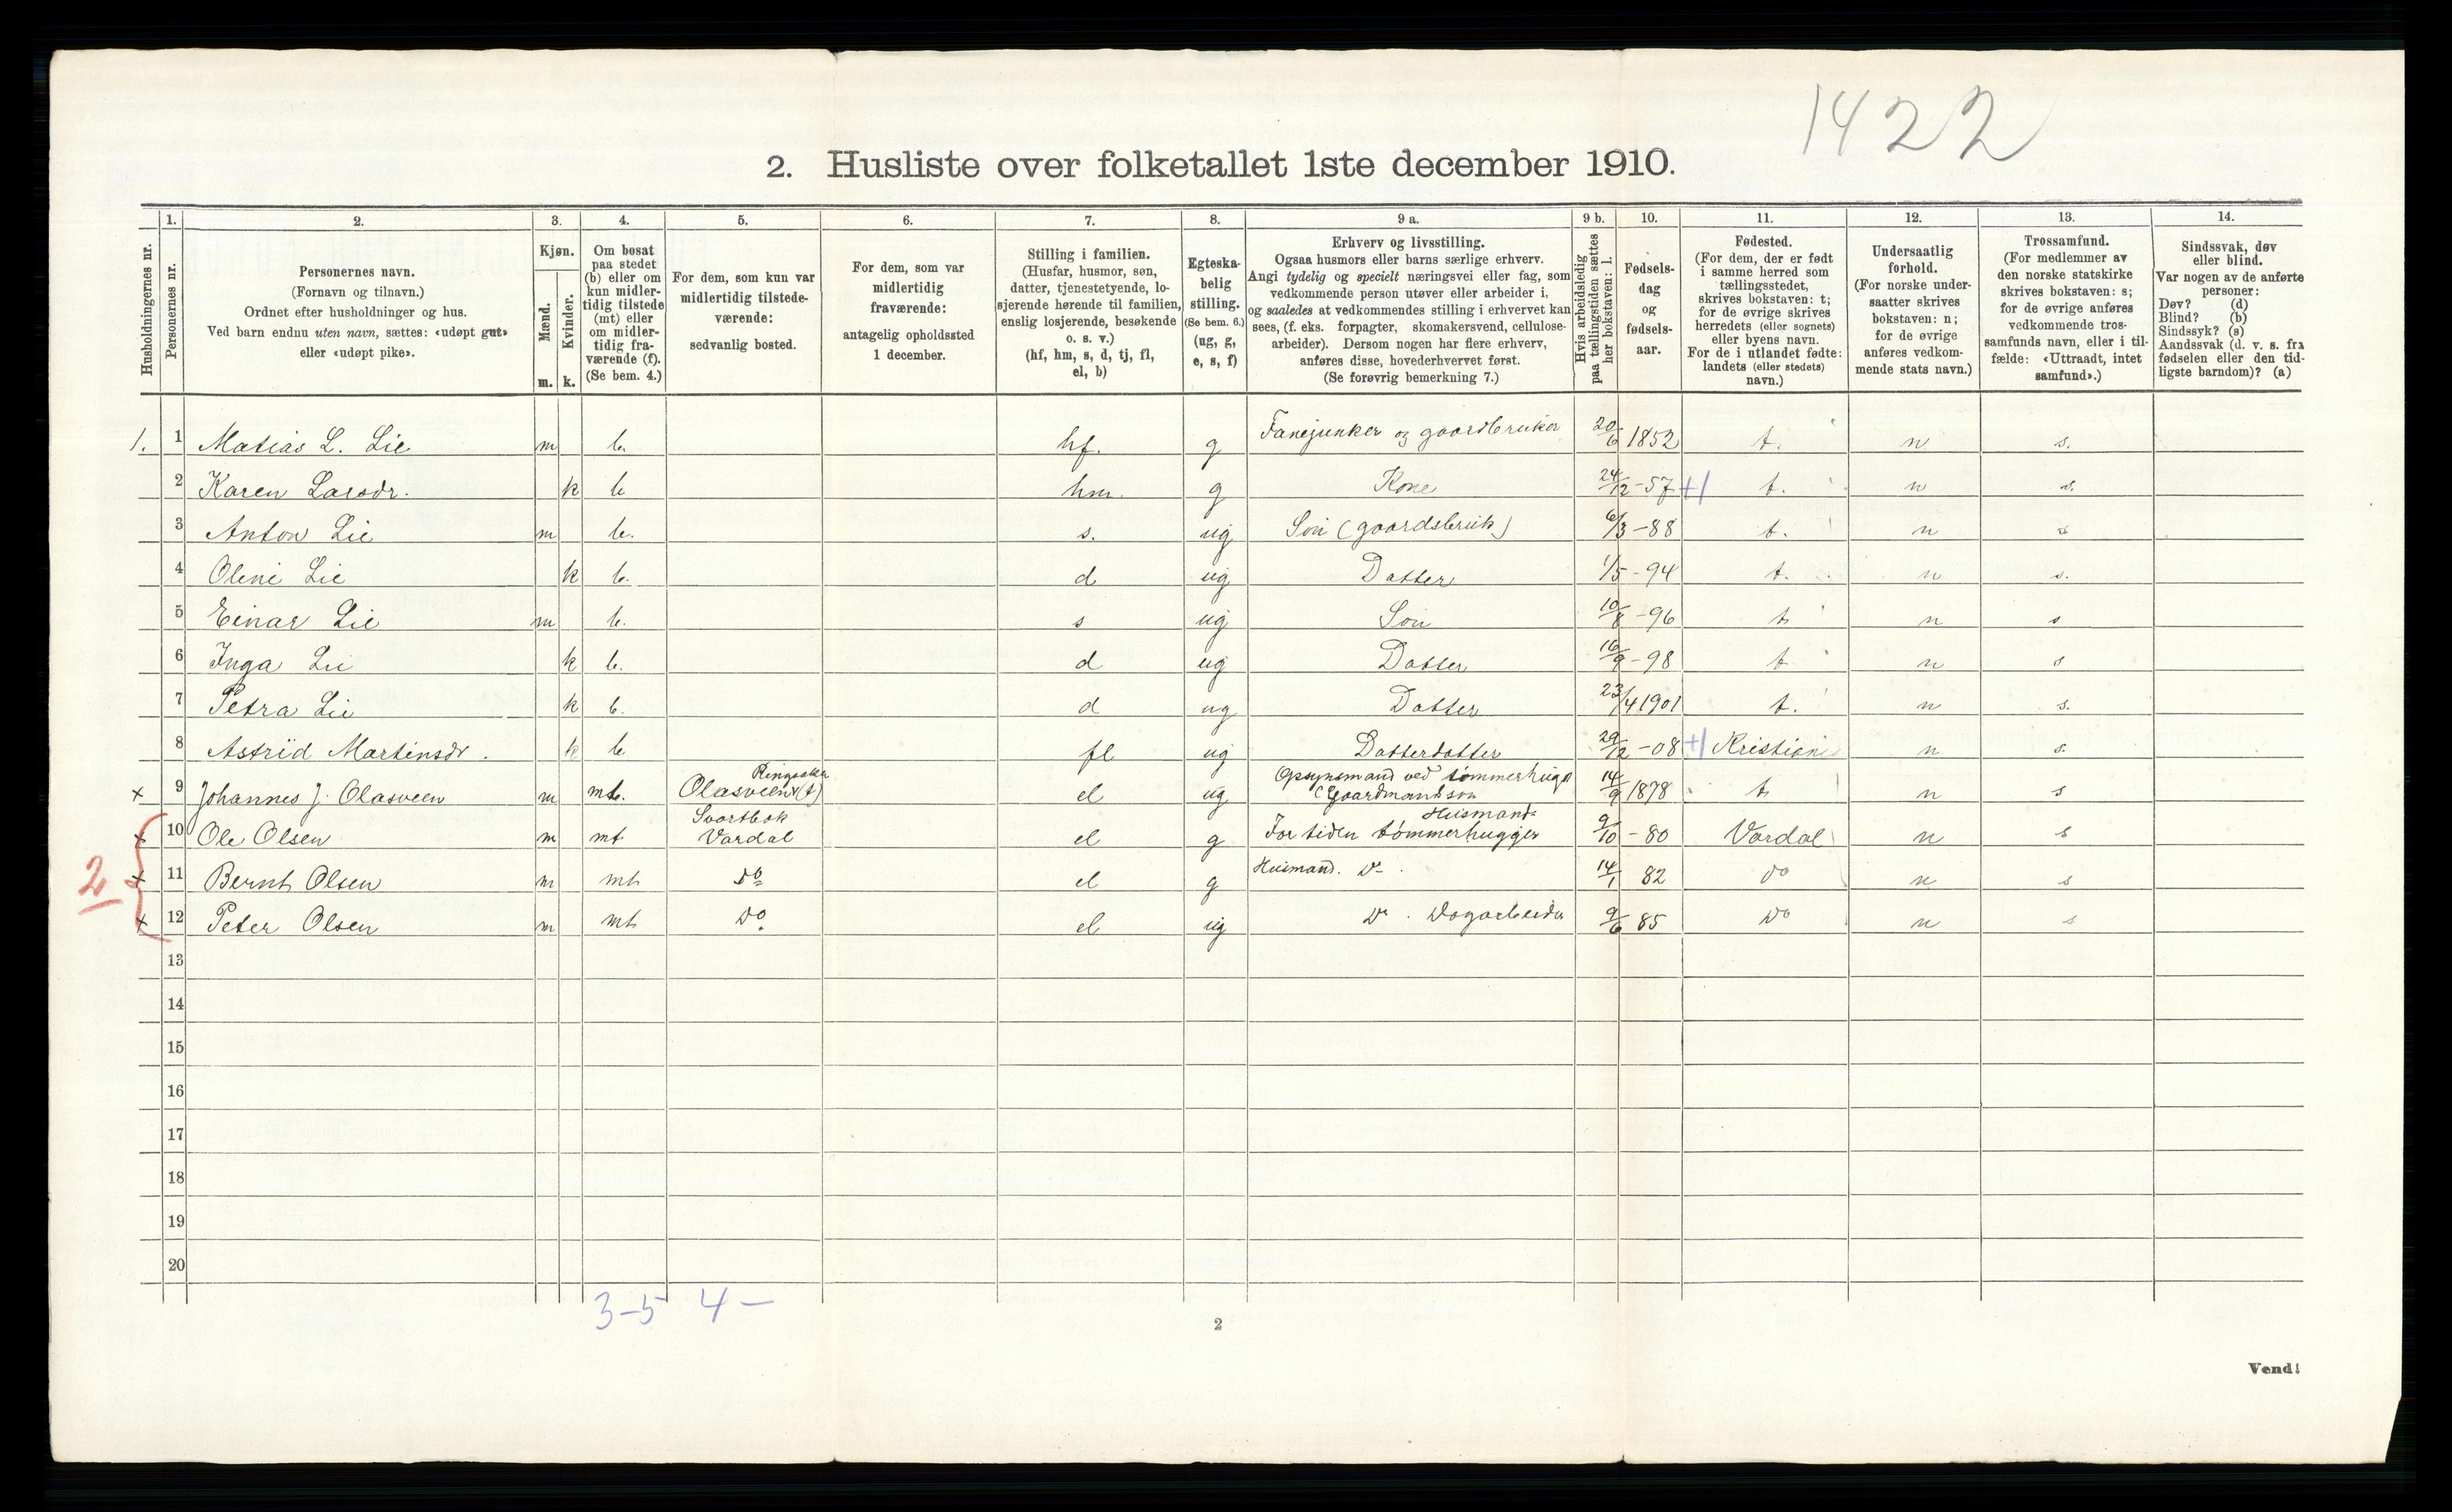 1422
2. Husliste over folketallet 1ste december 1910.
Husholdningernes nr.
1. Personernes nr.
2. Personernes navn.
(Fornavn og tilnavn.)
Ordnet efter husholdninger og hus.
Ved barn endnu uten navn, sættes: «udøpt gut»
eller «udøpt pike».
3. Kjøn.
Mænd. m.
Kvinder. k.
4. Om bosat
paa stedet
(b) eller om
kun midler-
tidig tilstede
(mt) eller
om midler-
tidig fra-
værende (f).
(Se bem. 4.)
5. For dem, som kun var
midlertidig tilstede-
værende:
sedvanlig bosted.
6. For dem, som var
midlertidig
fraværende:
antagelig opholdssted
1 december.
7. Stilling i familien.
(Husfar, husmor, søn,
datter, tjenestetyende, lo-
sjerende hørende til familien,
enslig losjerende, besøkende
o. s. v.)
(hf, hm, s, d, tj, fl,
el, b)
8. Egteska-
belig
stilling.
(Se bem. 6.)
(ug, g,
e, s, f)
9 a. Erhverv og livsstilling.
Ogsaa husmors eller barns særlige erhverv.
Angi tydelig og specielt næringsvei eller fag, som
vedkommende person utøver eller arbeider i,
og saaledes at vedkommendes stilling i erhvervet kan
sees, (f. eks. forpagter, skomakersvend, cellulose-
arbeider). Dersom nogen har flere erhverv,
anføres disse, hovederhvervet først.
(Se forøvrig bemerkning 7.)
9 b. Hvis arbeidsledig
paa tællingstiden sættes
her bokstaven: l.
10. Fødsels-
dag
og
fødsels-
aar.
11. Fødested.
(For dem, der er født
i samme herred som
tællingsstedet,
skrives bokstaven: t;
for de øvrige skrives
herredets (eller sognets)
eller byens navn.
For de i utlandet fødte:
landets (eller stedets)
navn.)
12. Undersaatlig
forhold.
(For norske under-
saatter skrives
bokstaven: n;
for de øvrige
anføres vedkom-
mende stats navn.)
13. Trossamfund.
(For medlemmer av
den norske statskirke
skrives bokstaven: s;
for de øvrige anføres
vedkommende tros-
samfunds navn, eller i til-
fælde: «Uttraadt, intet
samfund».)
14. Sindssvak, døv
eller blind.
Var nogen av de anførte
personer:
Døv? (d)
Blind? (b)
Sindssyk? (s)
Aandssvak (d. v. s. fra
fødselen eller den tid-
ligste barndom)? (a)
1. 1 Matias L. Lie m b. hf. g Fanejunker og gaardbruker 20/6 1852 t. n s.
2 Karen Larsdr. k b hm. g Kone 24/12 -57 +1 t. n s.
3 Anton Lie m b. s. ug Søn (gaardsbruk) 6/3 -88 t. n s
4 Oline Lie k b. d ug Datter 1/5 -94 t. n s.
5 Einar Lie m b. s ug Søn 10/8 -96 t n s
6 Inga Lie k b. d ug Datter 16/9 -98 t n s
7 Petra Lie k b. d ug Datter 23/4 1901 t. n s.
8 Astrid Martinsdr. k b fl ug Datterdatter 29/12 -08 +1 Kristiania n s.
x 9 Johannes J. Olasveen m mt. Ringsaker Olasveen (t) el ug Opsynsmand ved tømmerhugst (Gaardmandssøn 14/9 1878 t n s
x 10 Ole Olsen m mt Svartbek Vardal el g Husmand For tiden tømmerhugger 9/10 -80 Vardal n s
2 x 11 Bernt Olsen m mt do el g Husmand. Do 14/1 82 do n s
x 12 Peter Olsen m mt Do el ug Do. Dagarbeider 9/6 85 Do n s
13
14
15
16
17
18
19
20
3-5 4-
2
Vend!